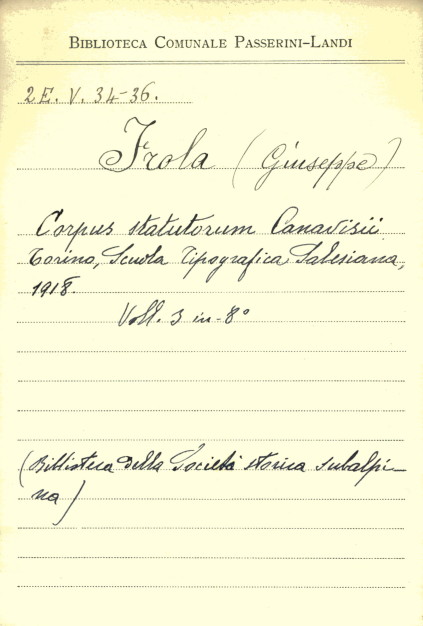 BIBLIOTECA COMUNALE PASSERINI-LANDI
2E. V. 34-36.
Frola (Giuseppe)
Corpus statutorum Canavisii
Torino, Scuola Tipografica Salesiana,
1918.
Voll. 3 in-8°
(Biblioteca della Società storica subalpi-
na)